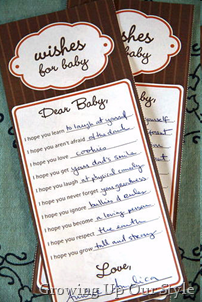 wishes
for baby
Dear Baby,
I hope you learn to laugh at yourself
I hope you aren't afraid of the dark
I hope you love cookies
I hope you get your dad's smile
I hope you laugh at physical comedy
I hope you never forget your goodness
I hope you ignore bullies &
I hope you become a loving person
I hope you respect the earth
I hope you grow tall and strong
Love,
wishes
for baby
Growing Up Our Style